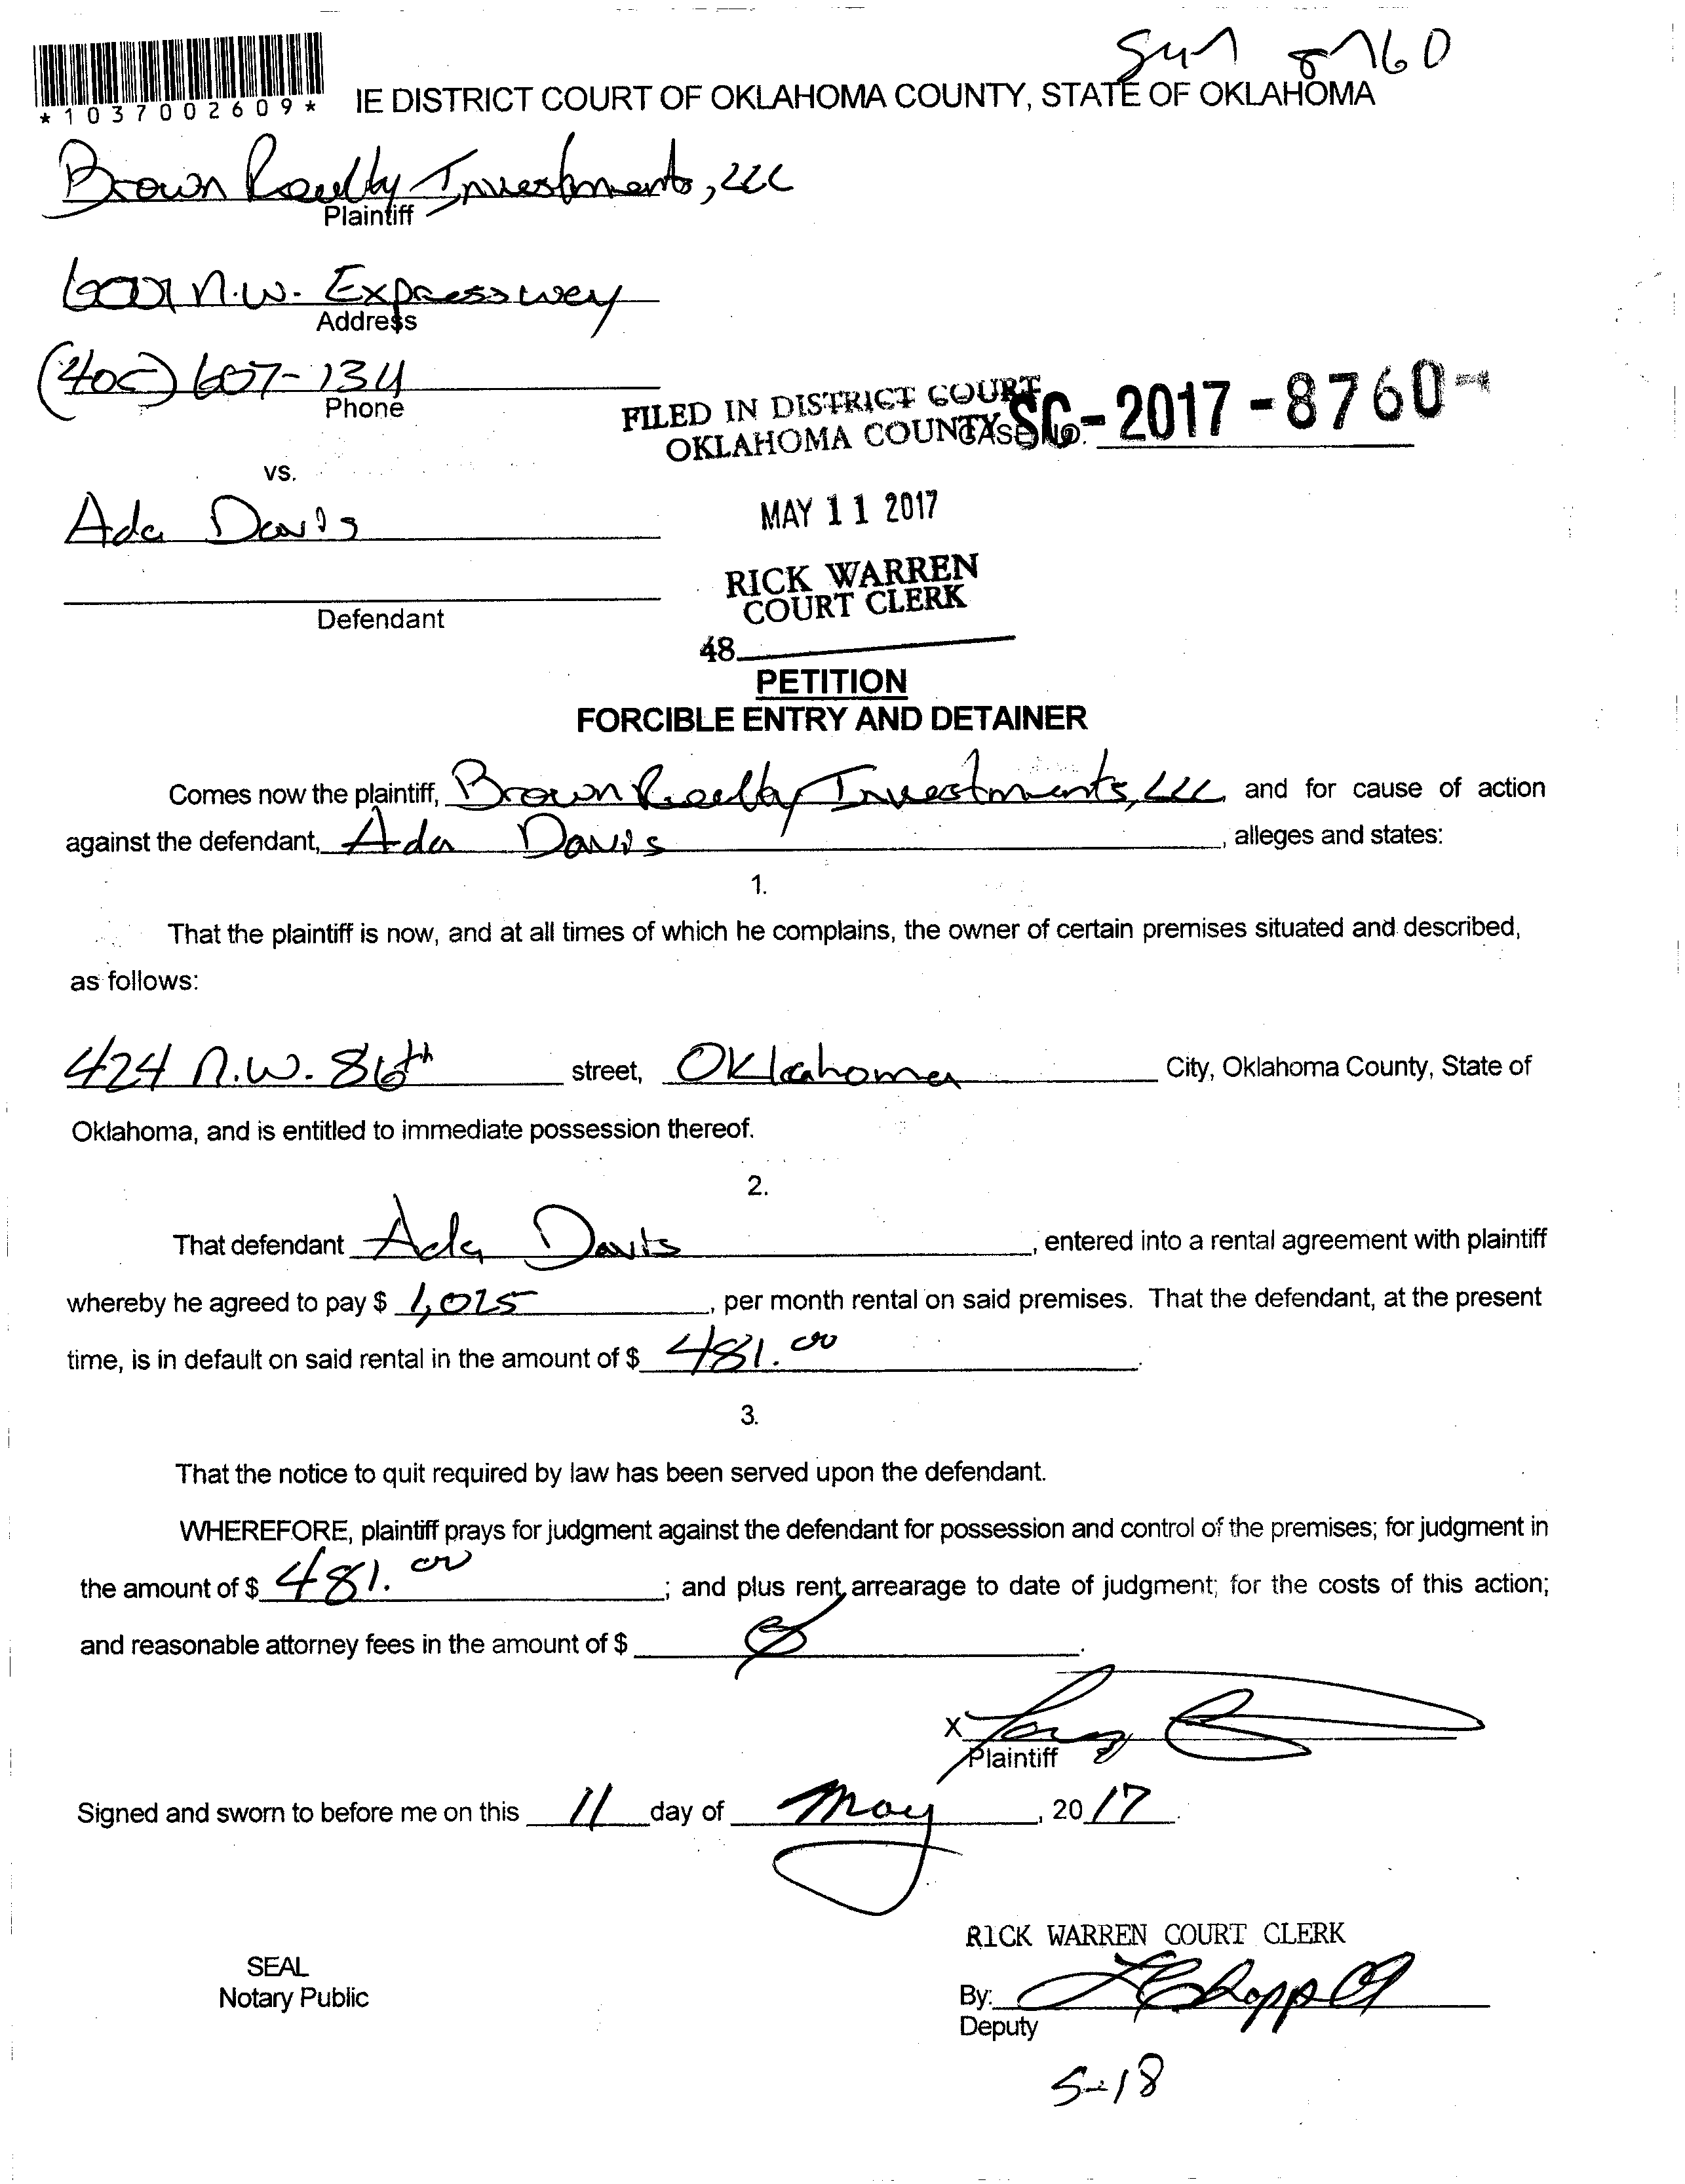 *1037002609*
IE DISTRICT COURT OF OKLAHOMA COUNTY, STATE OF OKLAHOMA
Brown Realty Investments, LLC
Plaintiff
6001 N.W. Expressway
Address
(405) 607-1311
Phone
FILED IN DISTRICT COURT
OKLAHOMA COUNTY
CASE NO. SC-2017-8760
vs.
MAY 11 2017
Ada Davis
RICK WARREN
COURT CLERK
Defendant
48
PETITION
FORCIBLE ENTRY AND DETAINER
Comes now the plaintiff, Brown Realty Investments, LLC and for cause of action
against the defendant, Ada Davis, alleges and states:
1.
That the plaintiff is now, and at all times of which he complains, the owner of certain premises situated and described,
as follows:
424 N.W. 86th street, Oklahoma City, Oklahoma County, State of
Oklahoma, and is entitled to immediate possession thereof.
2.
That defendant Ada Davis, entered into a rental agreement with plaintiff
whereby he agreed to pay $ 1,025, per month rental on said premises. That the defendant, at the present
time, is in default on said rental in the amount of $ 481.00.
3.
That the notice to quit required by law has been served upon the defendant.
WHEREFORE, plaintiff prays for judgment against the defendant for possession and control of the premises; for judgment in
the amount of $ 481.00; and plus rent arrearage to date of judgment; for the costs of this action;
and reasonable attorney fees in the amount of $
X
Plaintiff
Signed and sworn to before me on this 11 day of May, 2017.
RICK WARREN COURT CLERK
SEAL
Notary Public
By:
Deputy
5-18